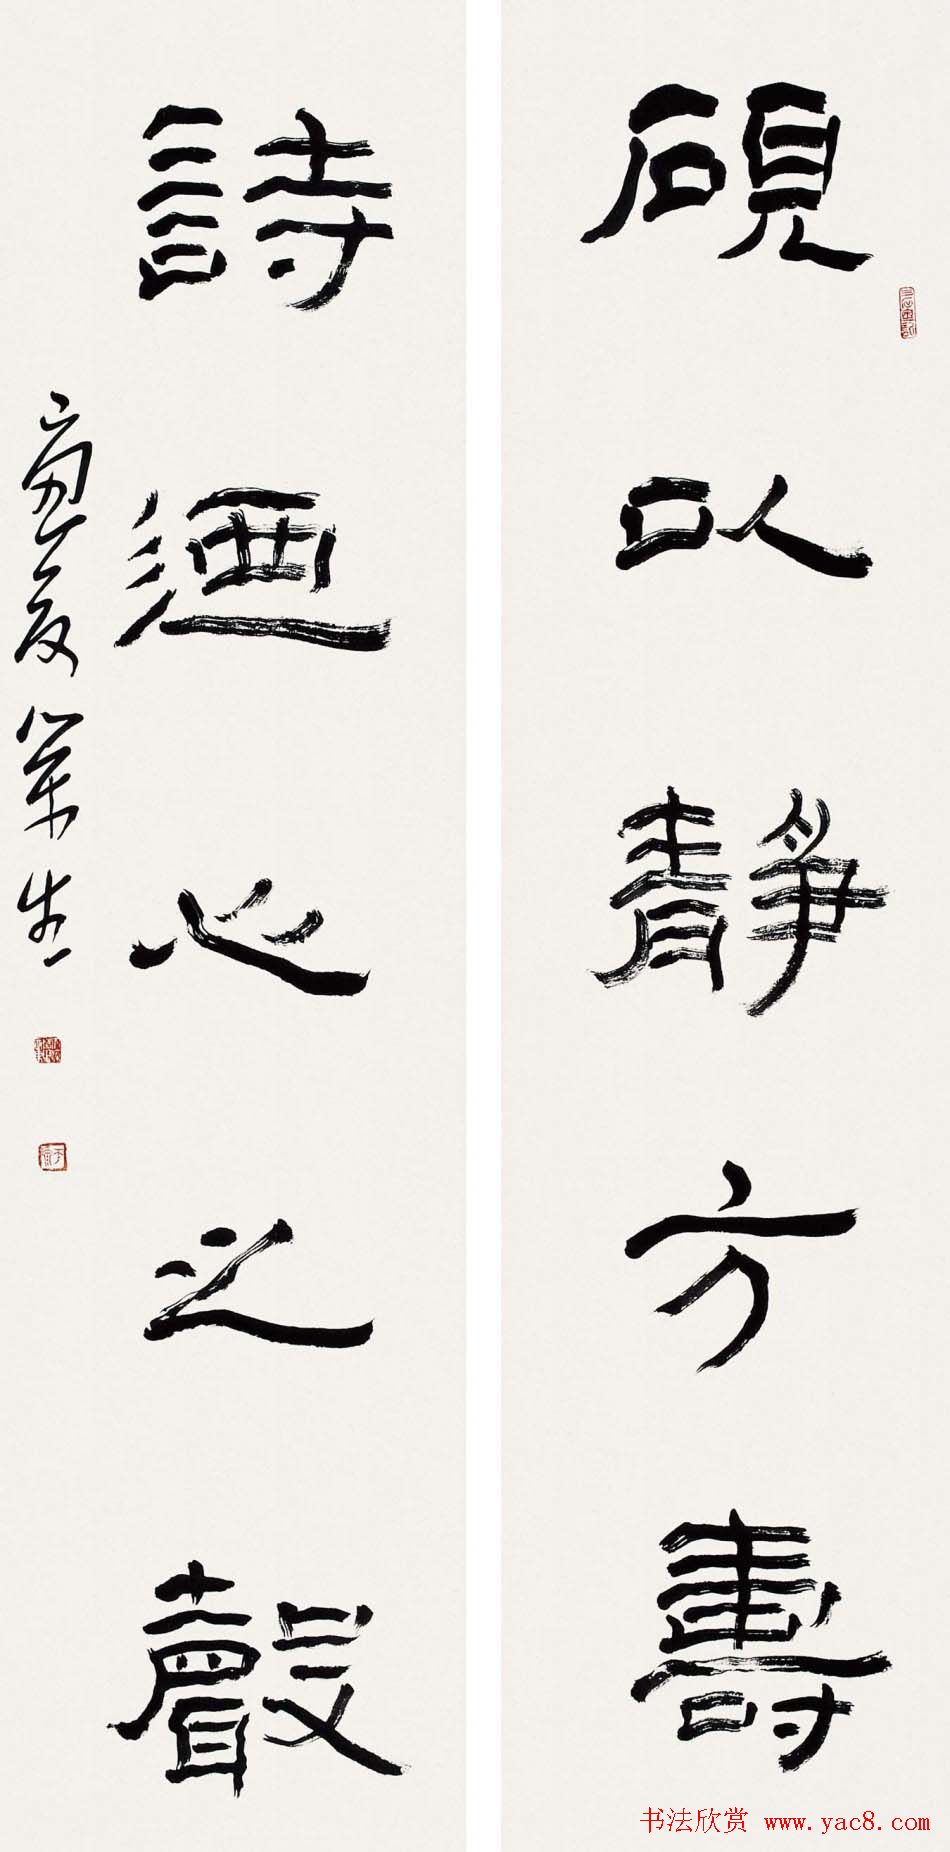 硯以靜方壽
詩迺心之聲
书法欣赏 www.yac8.com